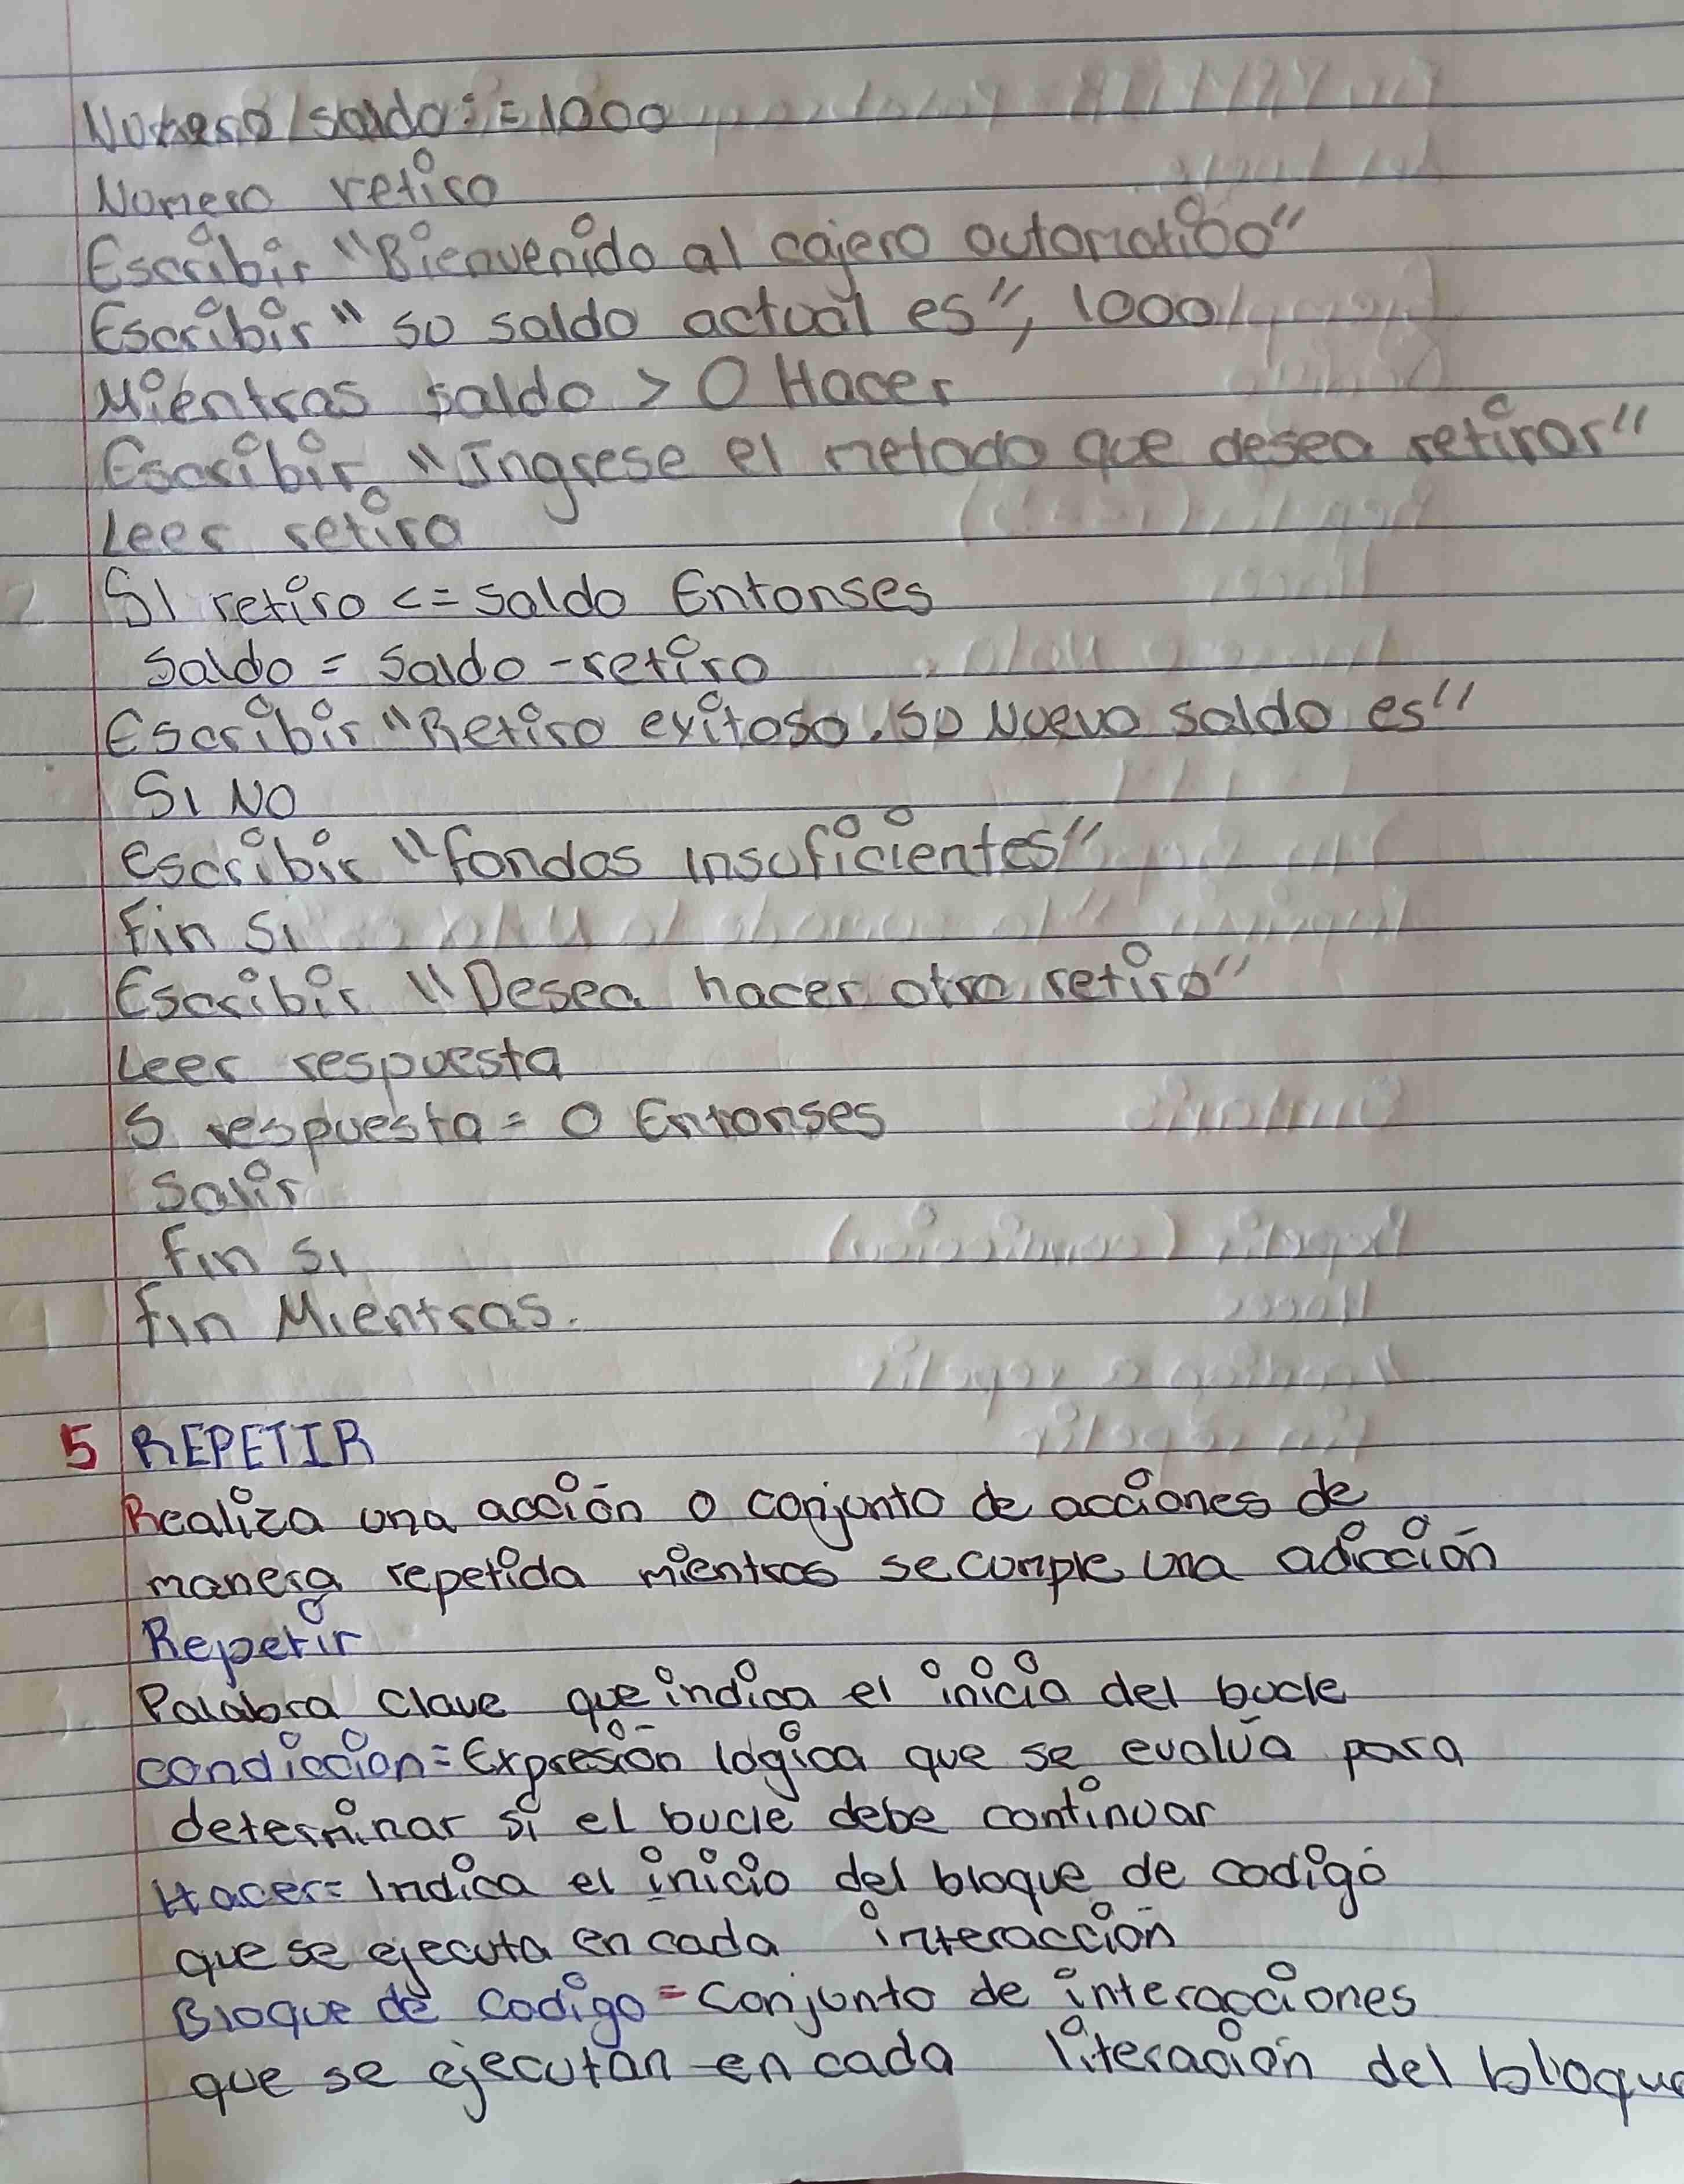 Numero saldo := 1000
Numero retiro
Escribir "Bienvenido al cajero automatico"
Escribir "su saldo actual es", 1000
Mientras saldo > 0 Hacer
Escribir "Ingrese el metodo que desea retirar"
Leer retiro
SI retiro <= saldo Entonses
saldo = saldo - retiro
Escribir "Retiro exitoso. su Nuevo saldo es"
SI NO
escribir "fondos insuficientes"
fin si
Escribir "Desea hacer otro retiro"
Leer respuesta
S respuesta = 0 Entonses
Salir
fin si
fin Mientras.
5 REPETIR
Realiza una acción o conjunto de acciones de
manera repetida mientras se cumple una adicción
Repetir
Palabra clave que indica el inicio del bucle
condiccion = Expresión logica que se evalúa para
determinar si el bucle debe continuar
Hacer = Indica el inicio del bloque de codigo
que se ejecuta en cada interacción
Bloque de codigo = Conjunto de interacciones
que se ejecután en cada literación del bloque